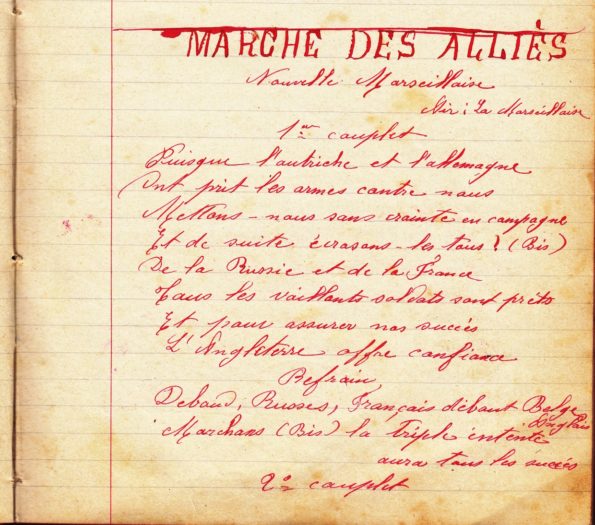 MARCHE DES ALLIÈS
Nouvelle Marseillaise
Air : La Marseillaise
1er couplet
Puisque l'autriche et l'allemagne
Ont prit les armes contre nous
Mettons-nous sans crainte en campagne
Et de suite écrasons-les tous ! (Bis)
De la Russie et de la France
Tous les vaillants soldats sont prêts
Et pour assurer nos succés
L'Angleterre offre confiance
Refrain,
Debout, Russes, Français débout Belge
Anglais
Marchons (Bis) la triple entente
aura tous les succés
2e couplet